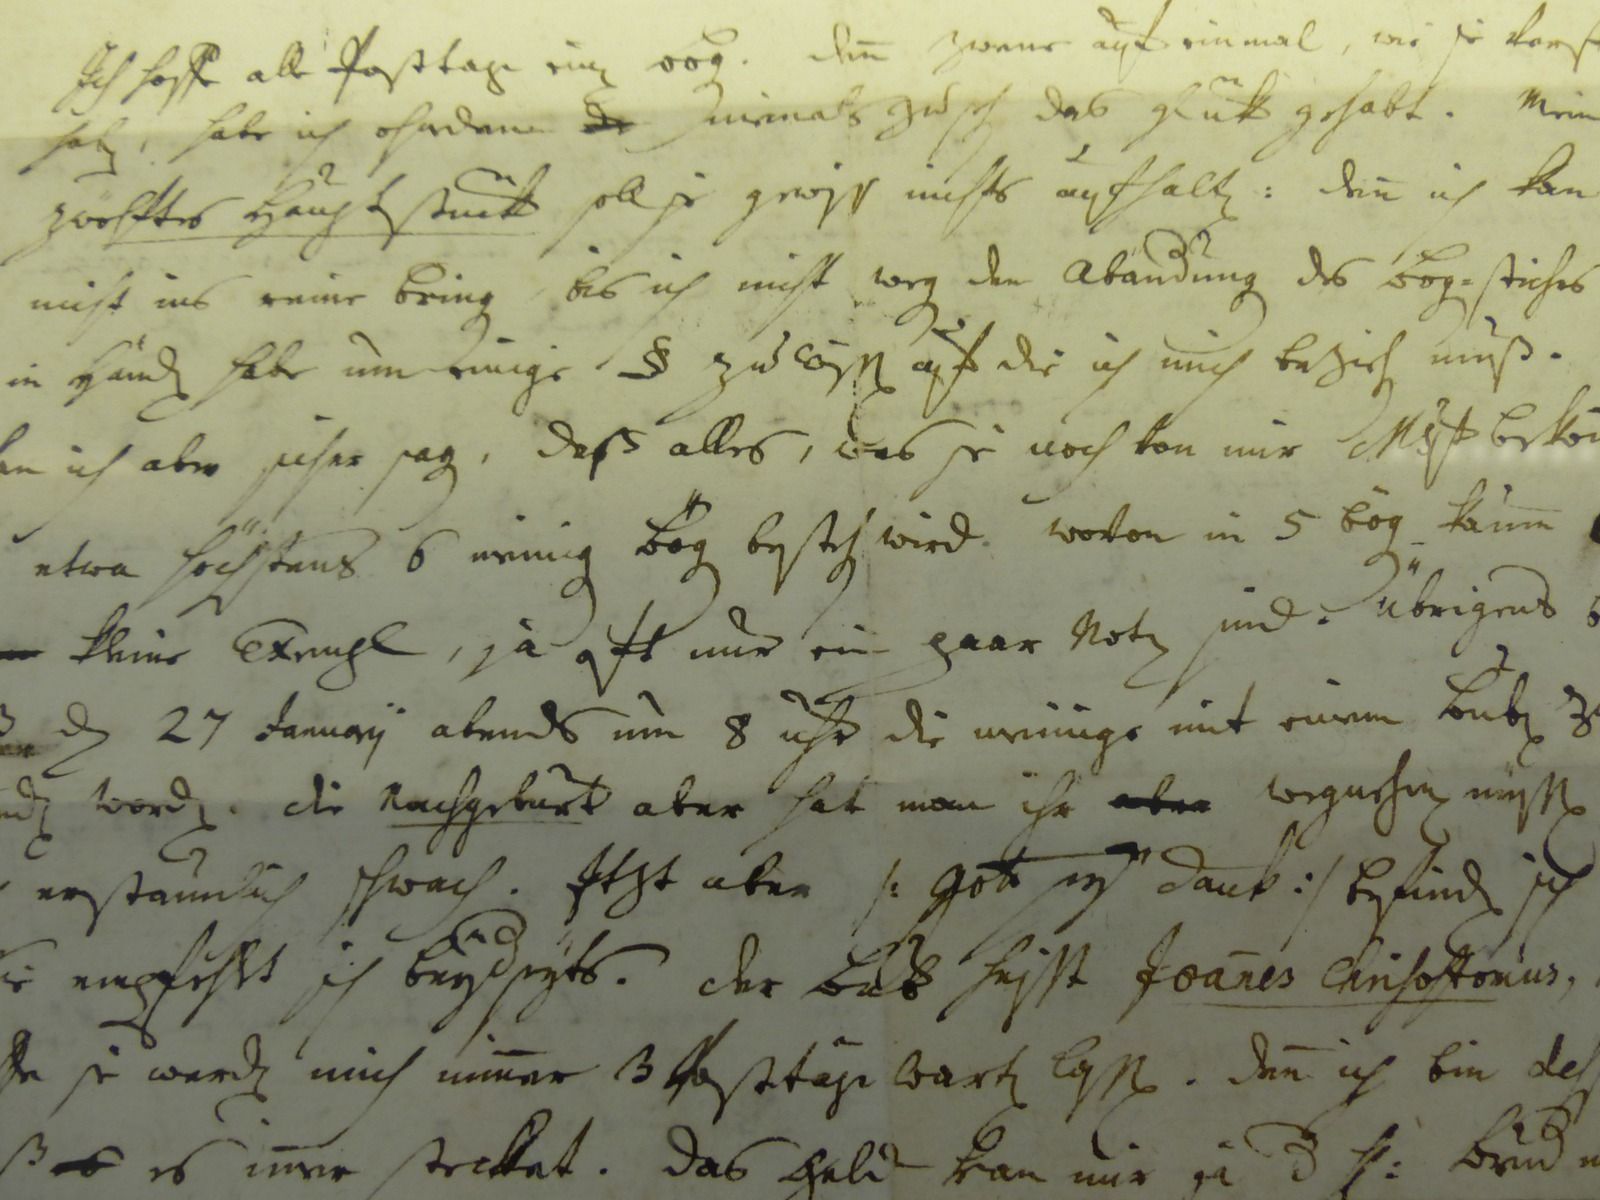 Ich hoffe alle Posttage einen Bög. denn zwene auf einmal, wie sie
haben, habe ich ohndem niemals zusehen das Glück gehabt. Mein
zwölftes Hauptstück soll sie gewiss nichts aufhalten: denn ich kan
nicht ins reine bringen bis ich nicht wegen der Abänderung des Bögen-striches
in Händen habe um einige § zu lesen auf die ich mich beziehen muß.
ich aber sicher sagen, daß alles, was sie noch von mir Msst
etwa höchstens 6 meinigen Bögen bestehen wird. wovon in 5 Bögen kaumm
kleine Exempl, ja oft nur ein paar Noten sind. übrigens
den 27 Januarij abends um 8 uhr die meinige mit einem Buben
worden. die Nachgeburt aber hat man ihr aber wegnehmen müssen
erstaunlich schwach. Itzt aber /: Gott seÿ dank :/ befinden sich
empfehlt sich beyderseyts. der Bub heisst Joannes Chrisostomus,
sie werden mich immer 3 Posttäge warten lassen. denn ich bin
es immer stecket. das Geld kan mir ja d H: